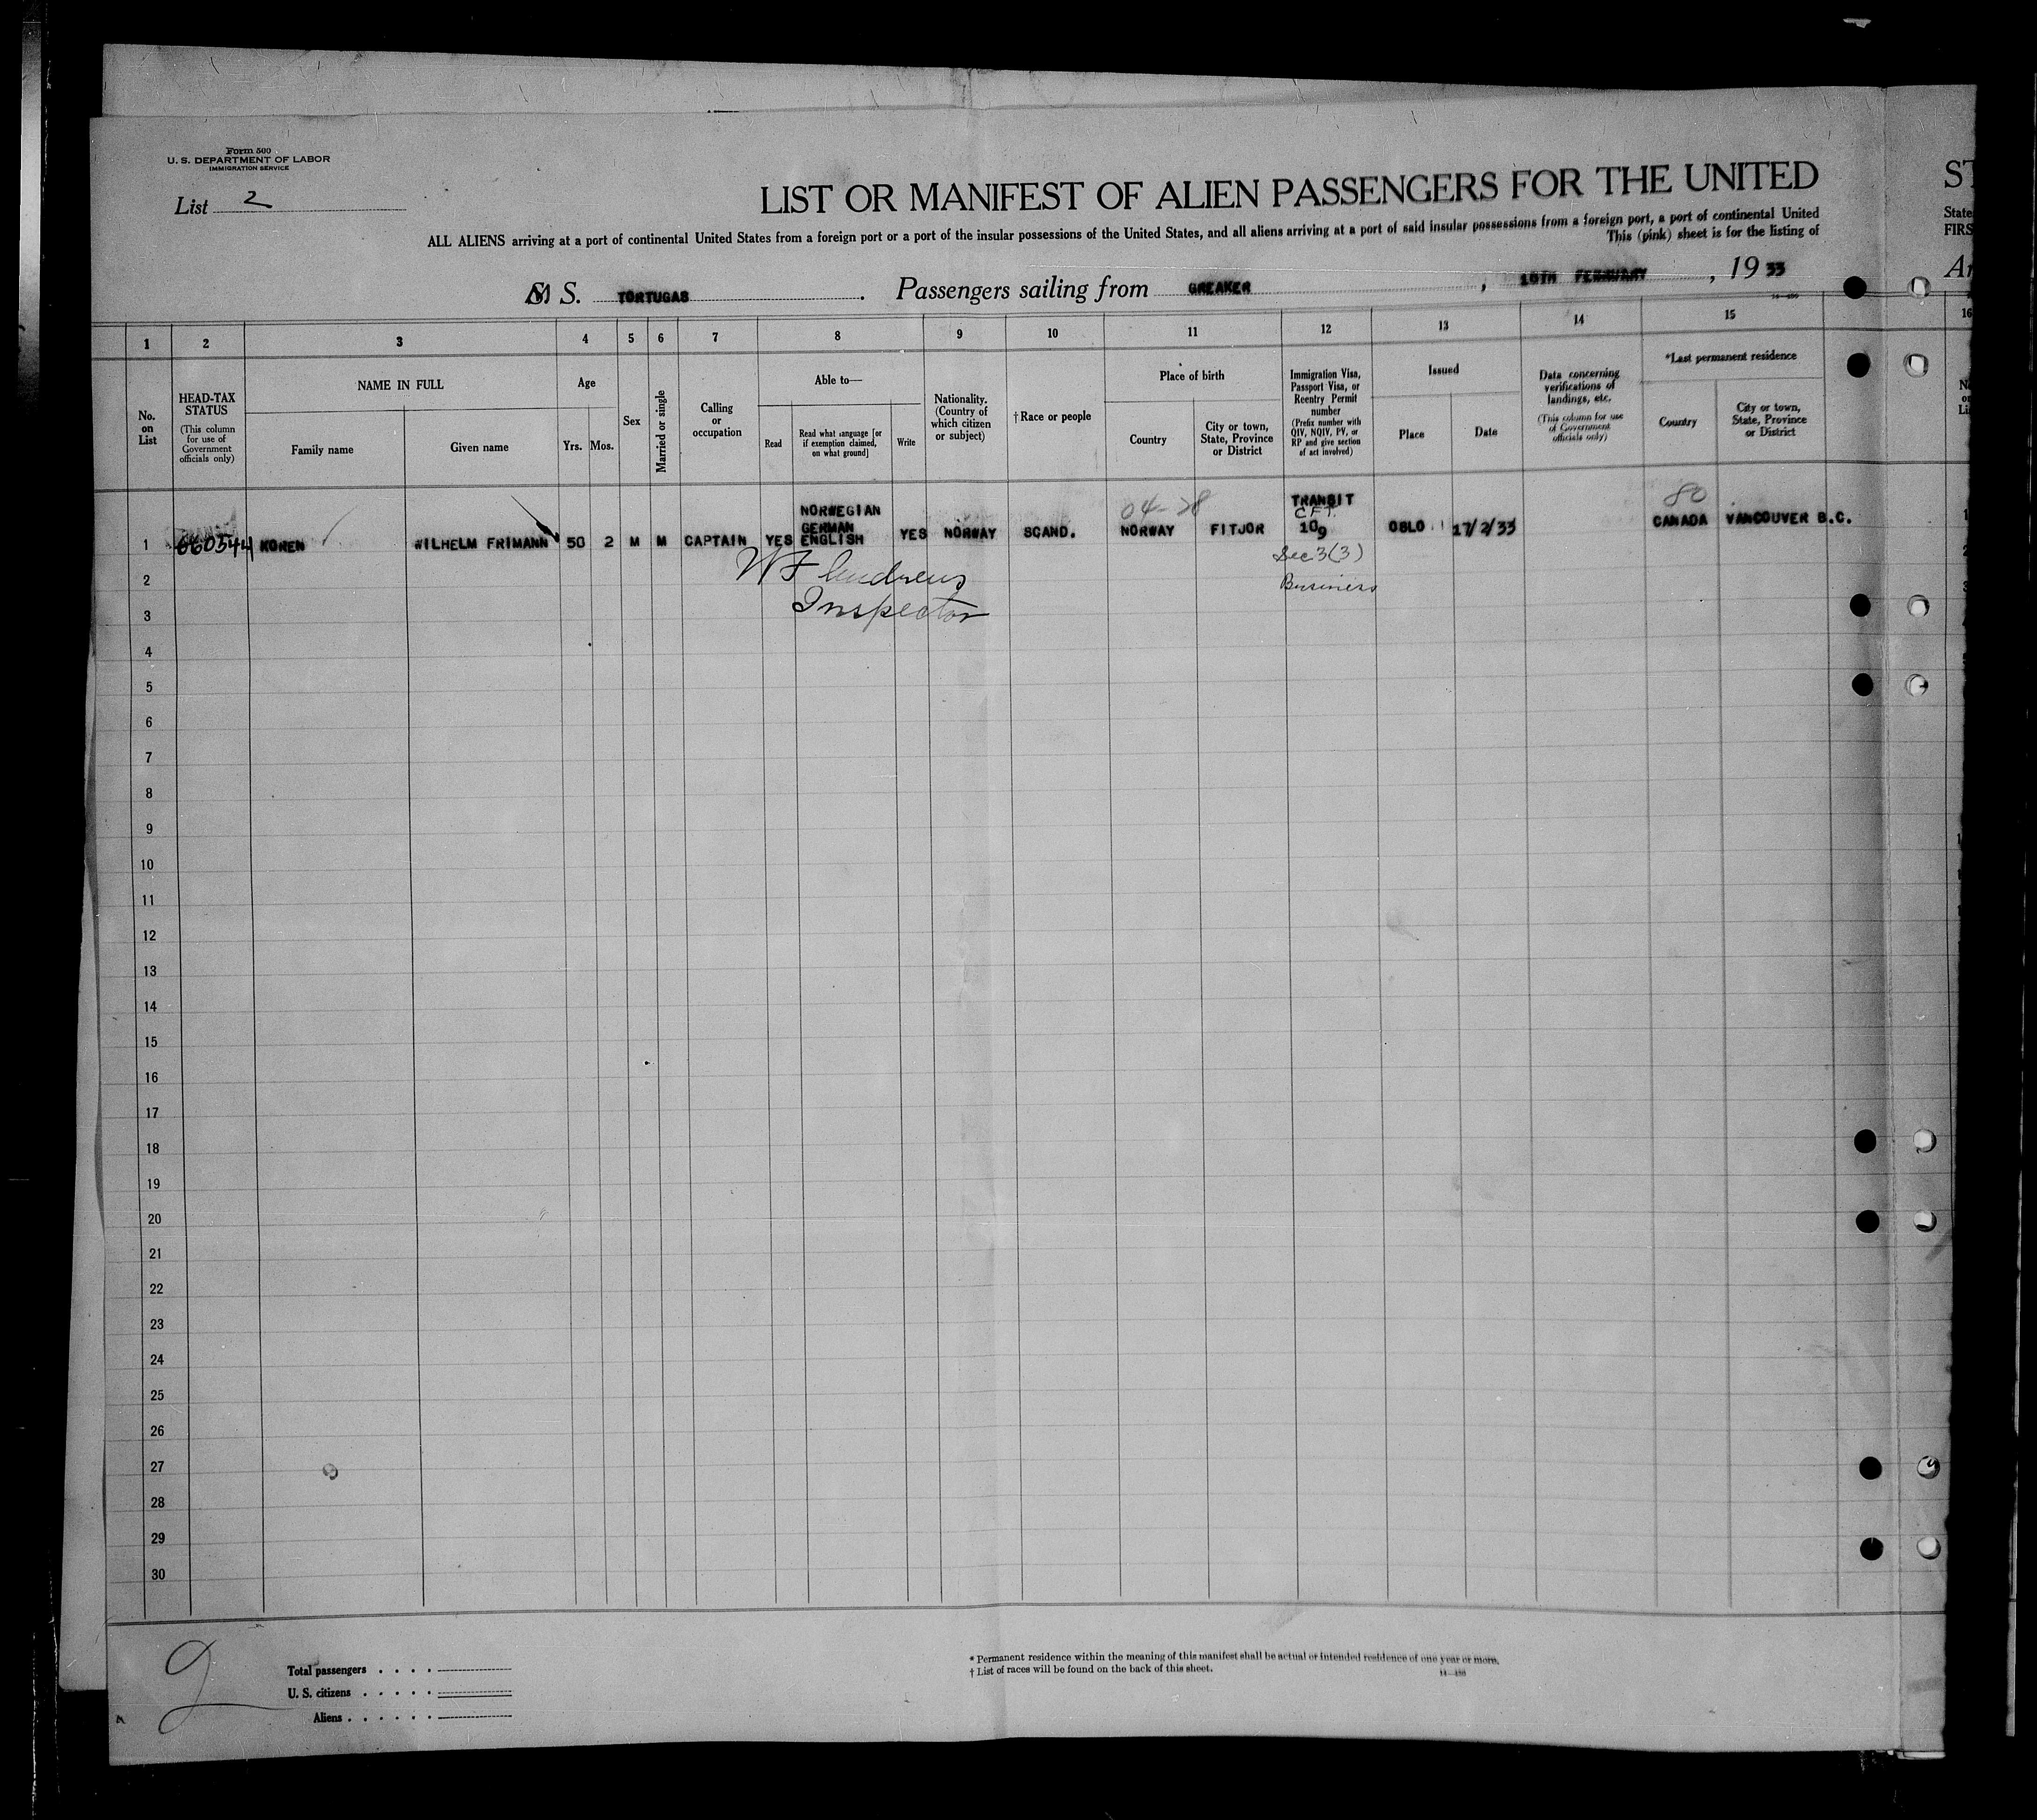 Form 500
U. S. DEPARTMENT OF LABOR
IMMIGRATION SERVICE
List 2
LIST OR MANIFEST OF ALIEN PASSENGERS FOR THE UNITED
ST
ALL ALIENS arriving at a port of continental United States from a foreign port or a port of the insular possessions of the United States, and all aliens arriving at a port of said insular possessions from a foreign port, a port of continental United
State
This (pink) sheet is for the listing of
FIRS
S. TORTUGAS . Passengers sailing from GREAKER , FEBRUARY , 19 33
1 2 3 4 5 6 7 8 9 10 11 12 13 14 15 16
No. on List
HEAD-TAX STATUS
(This column for use of Government officials only)
NAME IN FULL
Family name
Given name
Age
Yrs.
Mos.
Sex
Married or single
Calling or occupation
Able to—
Read
Read what language [or if exemption claimed, on what ground]
Write
Nationality. (Country of which citizen or subject)
†Race or people
Place of birth
Country
City or town, State, Province or District
Immigration Visa, Passport Visa, or Reentry Permit number
(Prefix number with QIV, NQIV, PV, or RP and give section of act involved)
Issued
Place
Date
Data concerning verifications of landings, etc.
(This column for use of Government officials only)
*Last permanent residence
Country
City or town, State, Province or District
NORWEGIAN
04-28
TRANSIT
80
GERMAN
C.F.T.
1 660544 KOREN WILHELM FRIMANN 50 2 M M CAPTAIN YES ENGLISH YES NORWAY SCAND. NORWAY FITJOR 109 OSLO 17/2/33 CANADA VANCOUVER B.C.
Sec 3(3)
2 W F Andrews Business
3 Inspector
4
5
6
7
8
9
10
11
12
13
14
15
16
17
18
19
20
21
22
23
24
25
26
27
28
29
30
Total passengers . . . .
U. S. citizens . . . . .
Aliens . . . . . .
* Permanent residence within the meaning of this manifest shall be actual or intended residence of one year or more.
† List of races will be found on the back of this sheet.